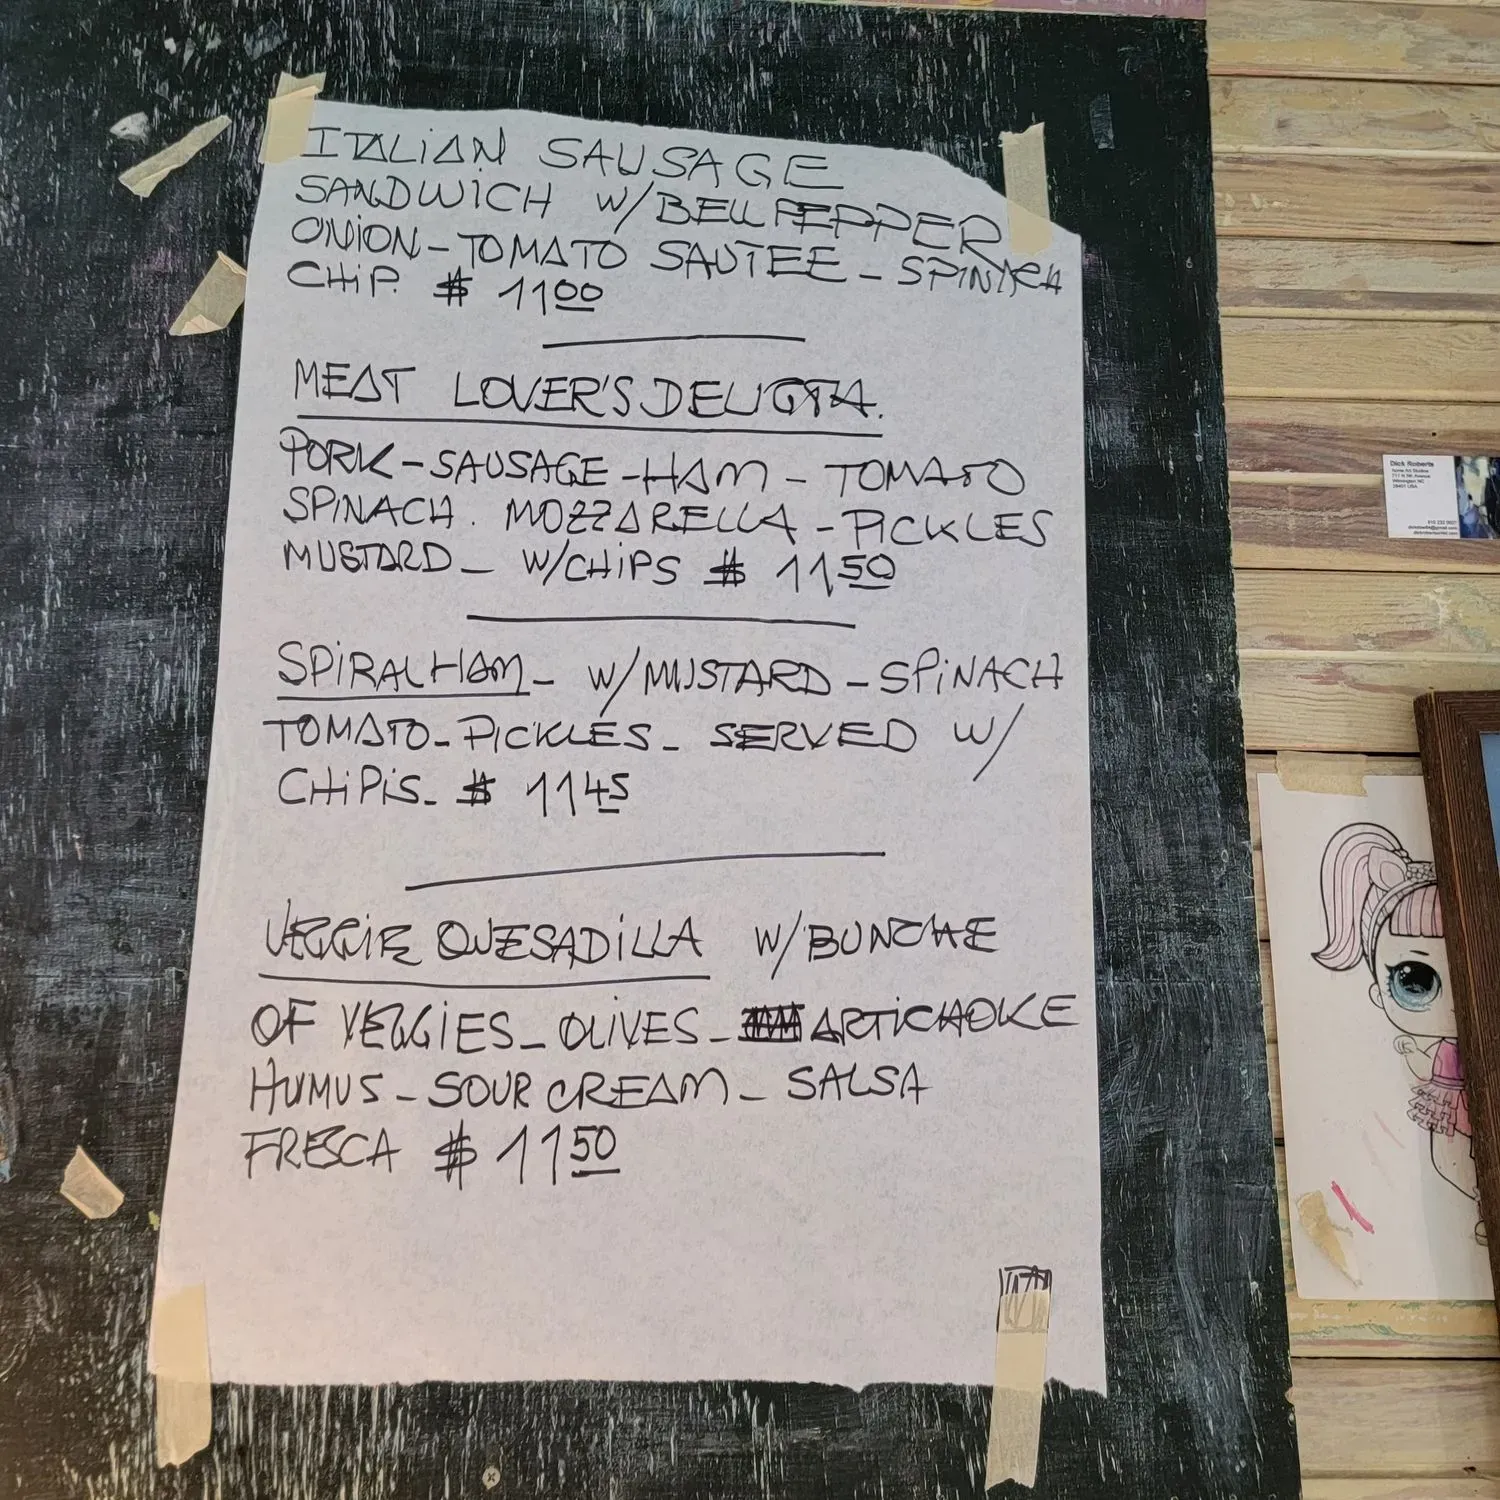 ITALIAN SAUSAGE
SANDWICH W/BELLPEPPER
ONION-TOMATO SAUTEE - SPINACH
CHIP. $ 11.00
MEAT LOVER'S DELIGTA.
PORK-SAUSAGE-HAM - TOMATO
SPINACH. MOZZARELLA - PICKLES
MUSTARD_ W/CHIPS $ 11.50
SPIRAL HAM_ W/MUSTARD - SPINACH
TOMATO-PICKLES_ SERVED W/
CHIPIS_ $ 11.45
VEGGIE QUESADILLA W/BUNCHE
OF VEGGIES_OLIVES_ ARTICHOKE
HUMUS_SOUR CREAM_ SALSA
FRESCA $ 11.50
Dick Roberts
Acme Art Studios
711 N 5th Avenue
Wilmington NC
28401 USA